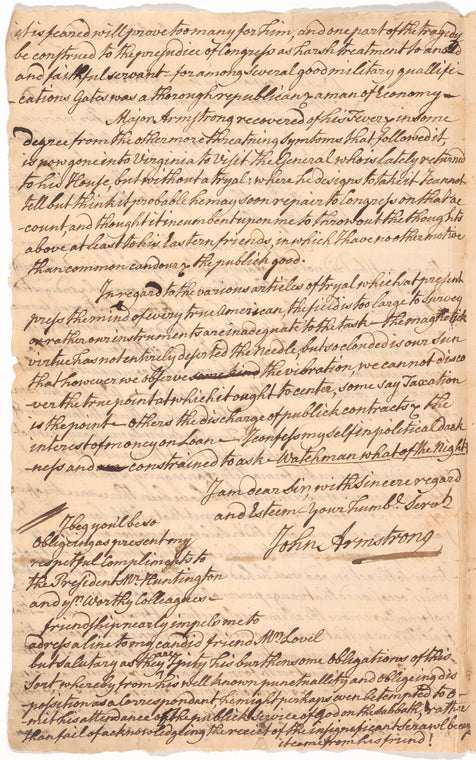 it is feared will prove too many for him, and one part of the tragedy
be construed to the prejudice of Congress as harsh treatment to an old
and faithful servant – for among several good military quallifi-
cations Gates was a thorough republican & a man of economy –
Major Armstrong recovered of his Fever & in some
degree from the other more threatning symtoms that followed it,
is now gone into Virginia to visit the General who is lately returned
to his House, but without a tryal; where he designs to take it I cannot
tell but think it probable he may soon repair to Congress on that ac
count, and thought it incumbent upon me to throw out the thoughts
above at least to his Eastern friends, in which I have no other motive
than common candour & the publick good.
In regard to the various articles of tryal which at present
press the mind of every true American, the field is too large to survey
or rather our instruments are inadequate to the task – the magnetick
virtue has not entirely deserted the needle, but so clouded is our Sun
that however we observe some kind the vibration, we cannot disco
ver the true point at which it ought to center, some say Taxation
is the point – others the discharge of publick contracts & the
interest of money on Loan – I confess myself in political dark
ness and constrained to ask – Watchman what of the Night,
I am dear Sir with sincere regard
and Esteem – Your humbl. Servt.
John Armstrong
I beg you'l be so
obligeing as present my
respectful Compliments to
the President Mr. Huntington
and yr. Worthy Colleagues –
friendship nearly impels me to
adress a line to my candid friend Mr. Lovel
but salutary as they are I pity his burthensome obligations of this
sort whereby from his well known punctuallity and obligeing dis
position as a Correspondent he might perhaps even be tempted to o-
mit his attendance of the publick Service of god on the Sabbath, rather
than fail of acknowledgling the receit of the insignificant scrawl because
it came from his friend!